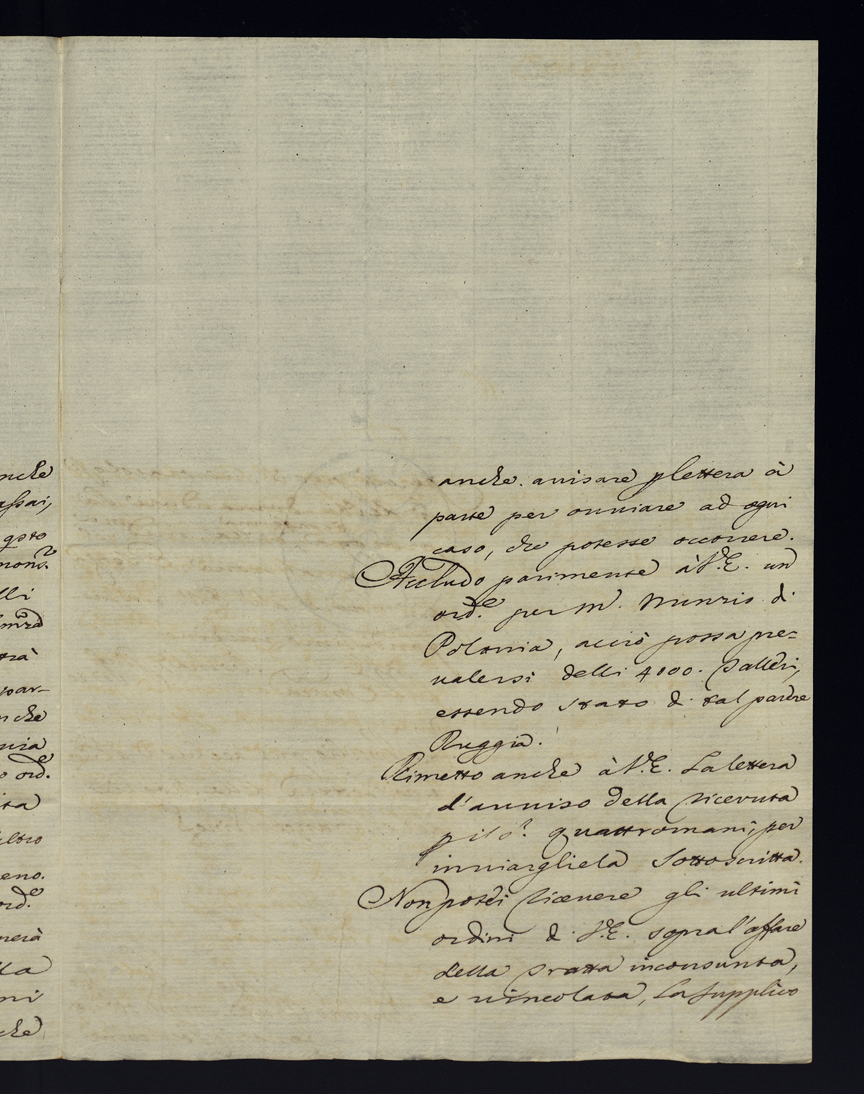 nche
assai,
qsto
mons.
lli
trà
par-
nche
nzia
o ord.e
ita
altro
eno.
ord.e
nerà
lla
ni
che
anche avisare p lettera à
parte per ovviare ad ogni
caso, che potesse occorrere.
Accludo parimente à V.E. un
ord.e per M. Nunzio di
Polonia, acciò possa pre=
valersi delli 4000. Talleri,
essendo stato di tal parere
Ruggia.
Rimetto anche à V.E. La lettera
d'avviso della ricevuta
p il S.r Quattromani, per
inviargliela Sottoscritta.
Non potei ricevere gli ultimi
ordini di V.E. sopra l'affare
della tratta inconsunta,
e vincolata, La supplico